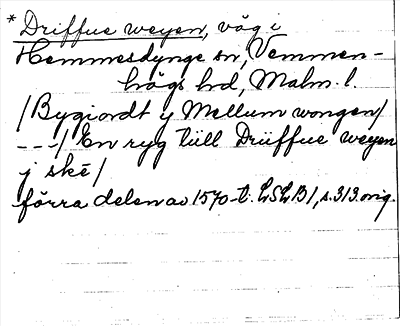 * Driffue weyen, väg i
Hemmesdynge sn, Vemmen-
högs hd, Malm. l.
/Bygiordt y Mellum wongen/
---/ En ryg tiill Driiffue weyen
j skē/
förra delen av 1570-t. LSLB1, s. 313. orig.